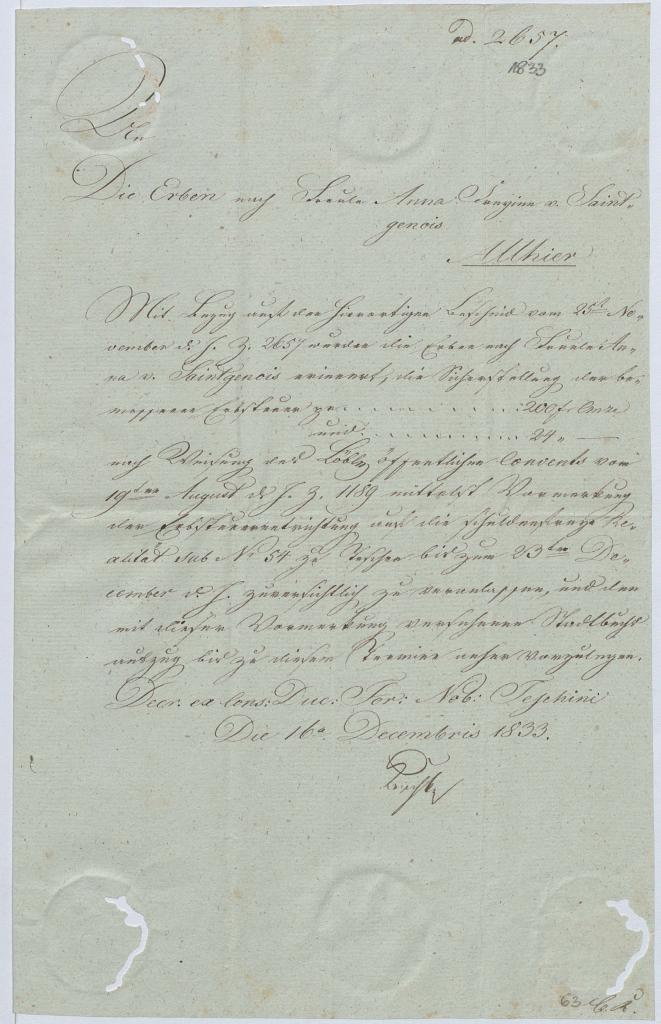 ad. 2657.
1833
An
Die Erben nach Fräule Anna v. Saint-
genois
Allhier
Mit Bezug auf den hierortigen Bescheid vom 25t No-
vember d. J. Z. 2657 werden die Erben nach Fräule An-
na v. Saintgenois erinnert, die Sicherstellung der be-
messenen Erbsteuer pr. . . . . . . . . . . 200 f
und . . . . . . . . . . 24 „ —
nach Weisung des Löbln öffentlichen Convents vom
19ten August d. J. Z. 1189 mittelst Vormerkung
der Erbsteuerentrichtung auf die schuldenfreye Re-
alität sub No 54 zu Teschen bis zum 23ten De-
cember d. J. zuversichtlich zu veranlassen, und den
mit dieser Vormerkung versehenen Stadtbuchs
auszug bis zu diesem Termine anher vorzulegen.
Decr. ex Cons: Duc: For: Nob: Teschini
Die 16a Decembris 1833.
63